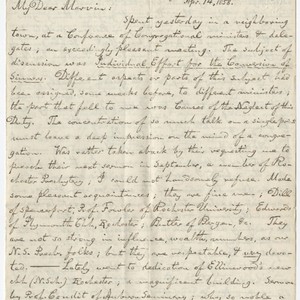 Apr. 14, 1858.
My Dear Morvin:
Spent yesterday in a neighboring
town, at a Conference of Congregational ministers & dele-
gates; an exceedingly pleasant meeting. The subject of
discussion was Individual Effort for the Conversion of
Sinners. Different aspects or parts of this subject had
been assigned, some weeks before, to different ministers;
the part that fell to me was Causes of the Neglect of this
Duty. The concentration of so much talk on a single point
must leave a deep impression on the mind of a congre-
gation. Was rather taken aback by their requesting me to
preach their next sermon in September, a member of Ro-
chester Presbytery; I could not handsomely refuse. Made
some pleasant acquaintances; they are fine men, Dill
of Spencerport, Prof. Fowler of Rochester University; Edwards
of Plymouth Ch, Rochester; Butler of Bergen, &c. They
are not so strong in influence, wealth, numbers, as our
N. S. Presb. folks; but they are respectable, & very devo-
ted. Lately went to dedication of Ellinwood's new
ch (N. Sch) Rochester; a magnificent building. Sermon
by Prof. Condit of Auburn Seminary;